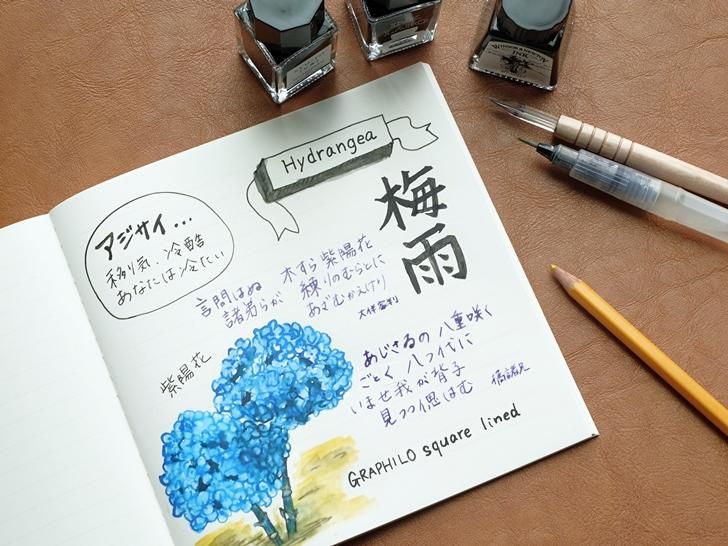 Hydrangea
梅雨
アジサイ…
移り気・冷酷
あなたは冷たい
言問はぬ 木すら紫陽花
諸弟らが 練りのむらとに
あざむかえけり
大伴家持
あじさゐの 八重咲く
ごとく 八つ代に
いませ我が背子
見つつ偲はむ
橘諸兄
紫陽花
GRAPHILO square lined
INK